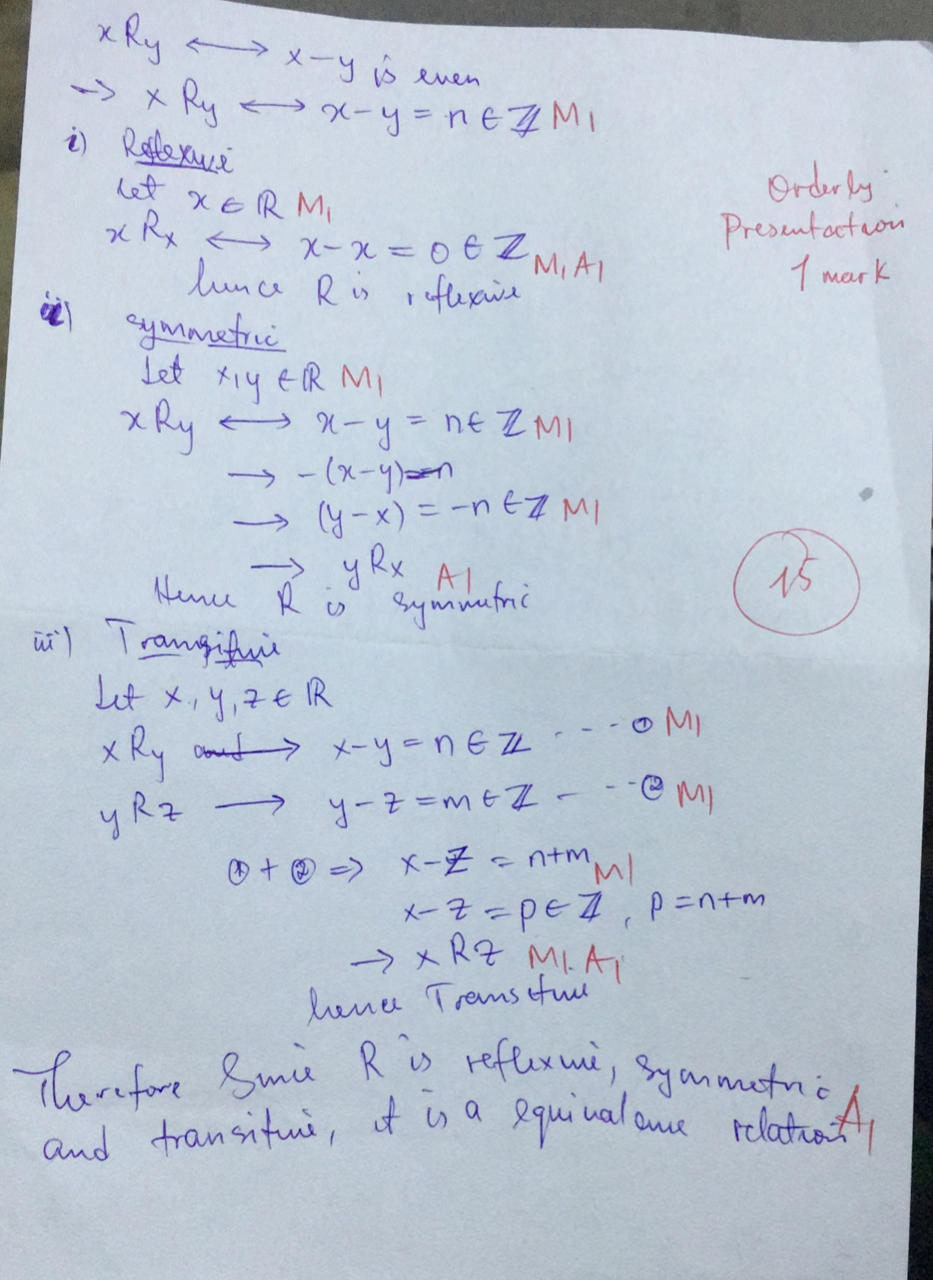 xRy ⟷ x-y is even
→ xRy ⟷ x-y = n ∈ ℤ M1
i) Reflexive
Let x ∈ ℝ M1
xRx ⟷ x-x = 0 ∈ ℤ M1 A1
hence R is reflexive
Orderly
Presentation
1 mark
ii) symmetric
Let x,y ∈ ℝ M1
xRy ⟷ x-y = n ∈ ℤ M1
→ -(x-y)=n
→ (y-x) = -n ∈ ℤ M1
→ yRx A1
Hence R is symmetric
15
iii) Transitive
Let x, y, z ∈ ℝ
xRy → x-y = n ∈ ℤ ---① M1
yRz → y-z = m ∈ ℤ ---② M1
①+② ⇒ x-z = n+m M1
x-z = p ∈ ℤ, p = n+m
→ xRz M1 A1
hence Transitive
Therefore Since R is reflexive, symmetric
and transitive, it is a equivalence relation A1